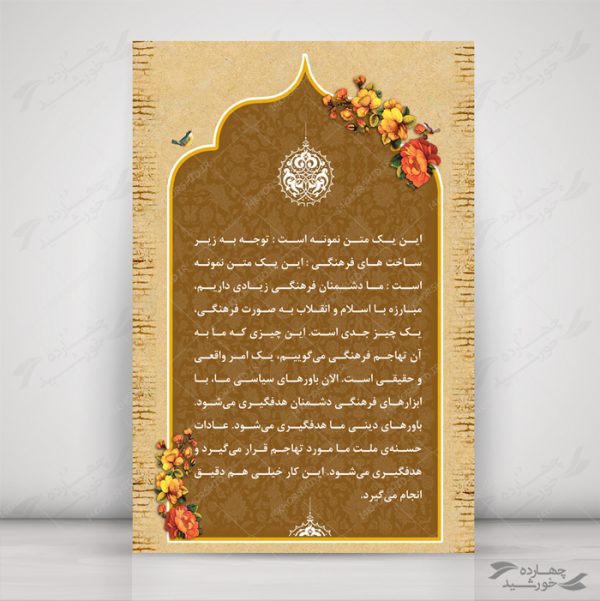 این یک متن نمونه است : توجه به زیر
ساخت های فرهنگی : این یک متن نمونه
است : ما دشمنان فرهنگی زیادی داریم،
مبارزه با اسلام و انقلاب به صورت فرهنگی،
یک چیز جدی است. این چیزی که ما به
آن تهاجم فرهنگی می‌گوییم، یک امر واقعی
و حقیقی است. الان باورهای سیاسی ما، با
ابزارهای فرهنگی دشمنان هدفگیری می‌شود.
باورهای دینی ما هدفگیری می‌شود. عادات
حسنه‌ی ملت ما مورد تهاجم قرار می‌گیرد و
هدفگیری می‌شود. این کار خیلی هم دقیق
انجام می‌گیرد.
چهارده
خورشید